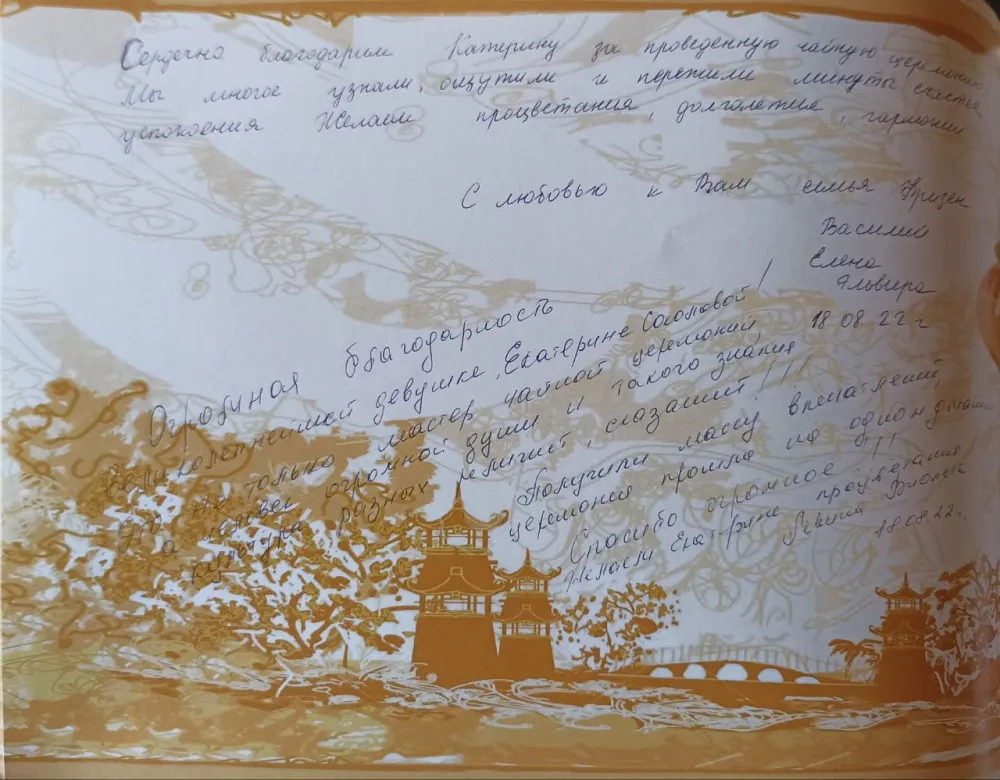 Сердечно благодарим Катерину за проведенную чайную церемонию.
Мы многое узнали, ощутили и пережили минуты счастья,
успокоения Желаем процветания, долголетия, гармонии
С любовью к Вам семья Фризен
Василий
Елена
Эльвира
18 08 22 г
Огромная благодарность
великолепнейшей девушке, Екатерине !
Это не только мастер чайной церемонии,
а человек огромной души и такого знания
культуры разных религий, сказаний!!!
Получили массу впечатлений,
церемония прошла на одном дыхании
Спасибо огромное!!!
Желаем Екатерине процветания!
18.08.22г.